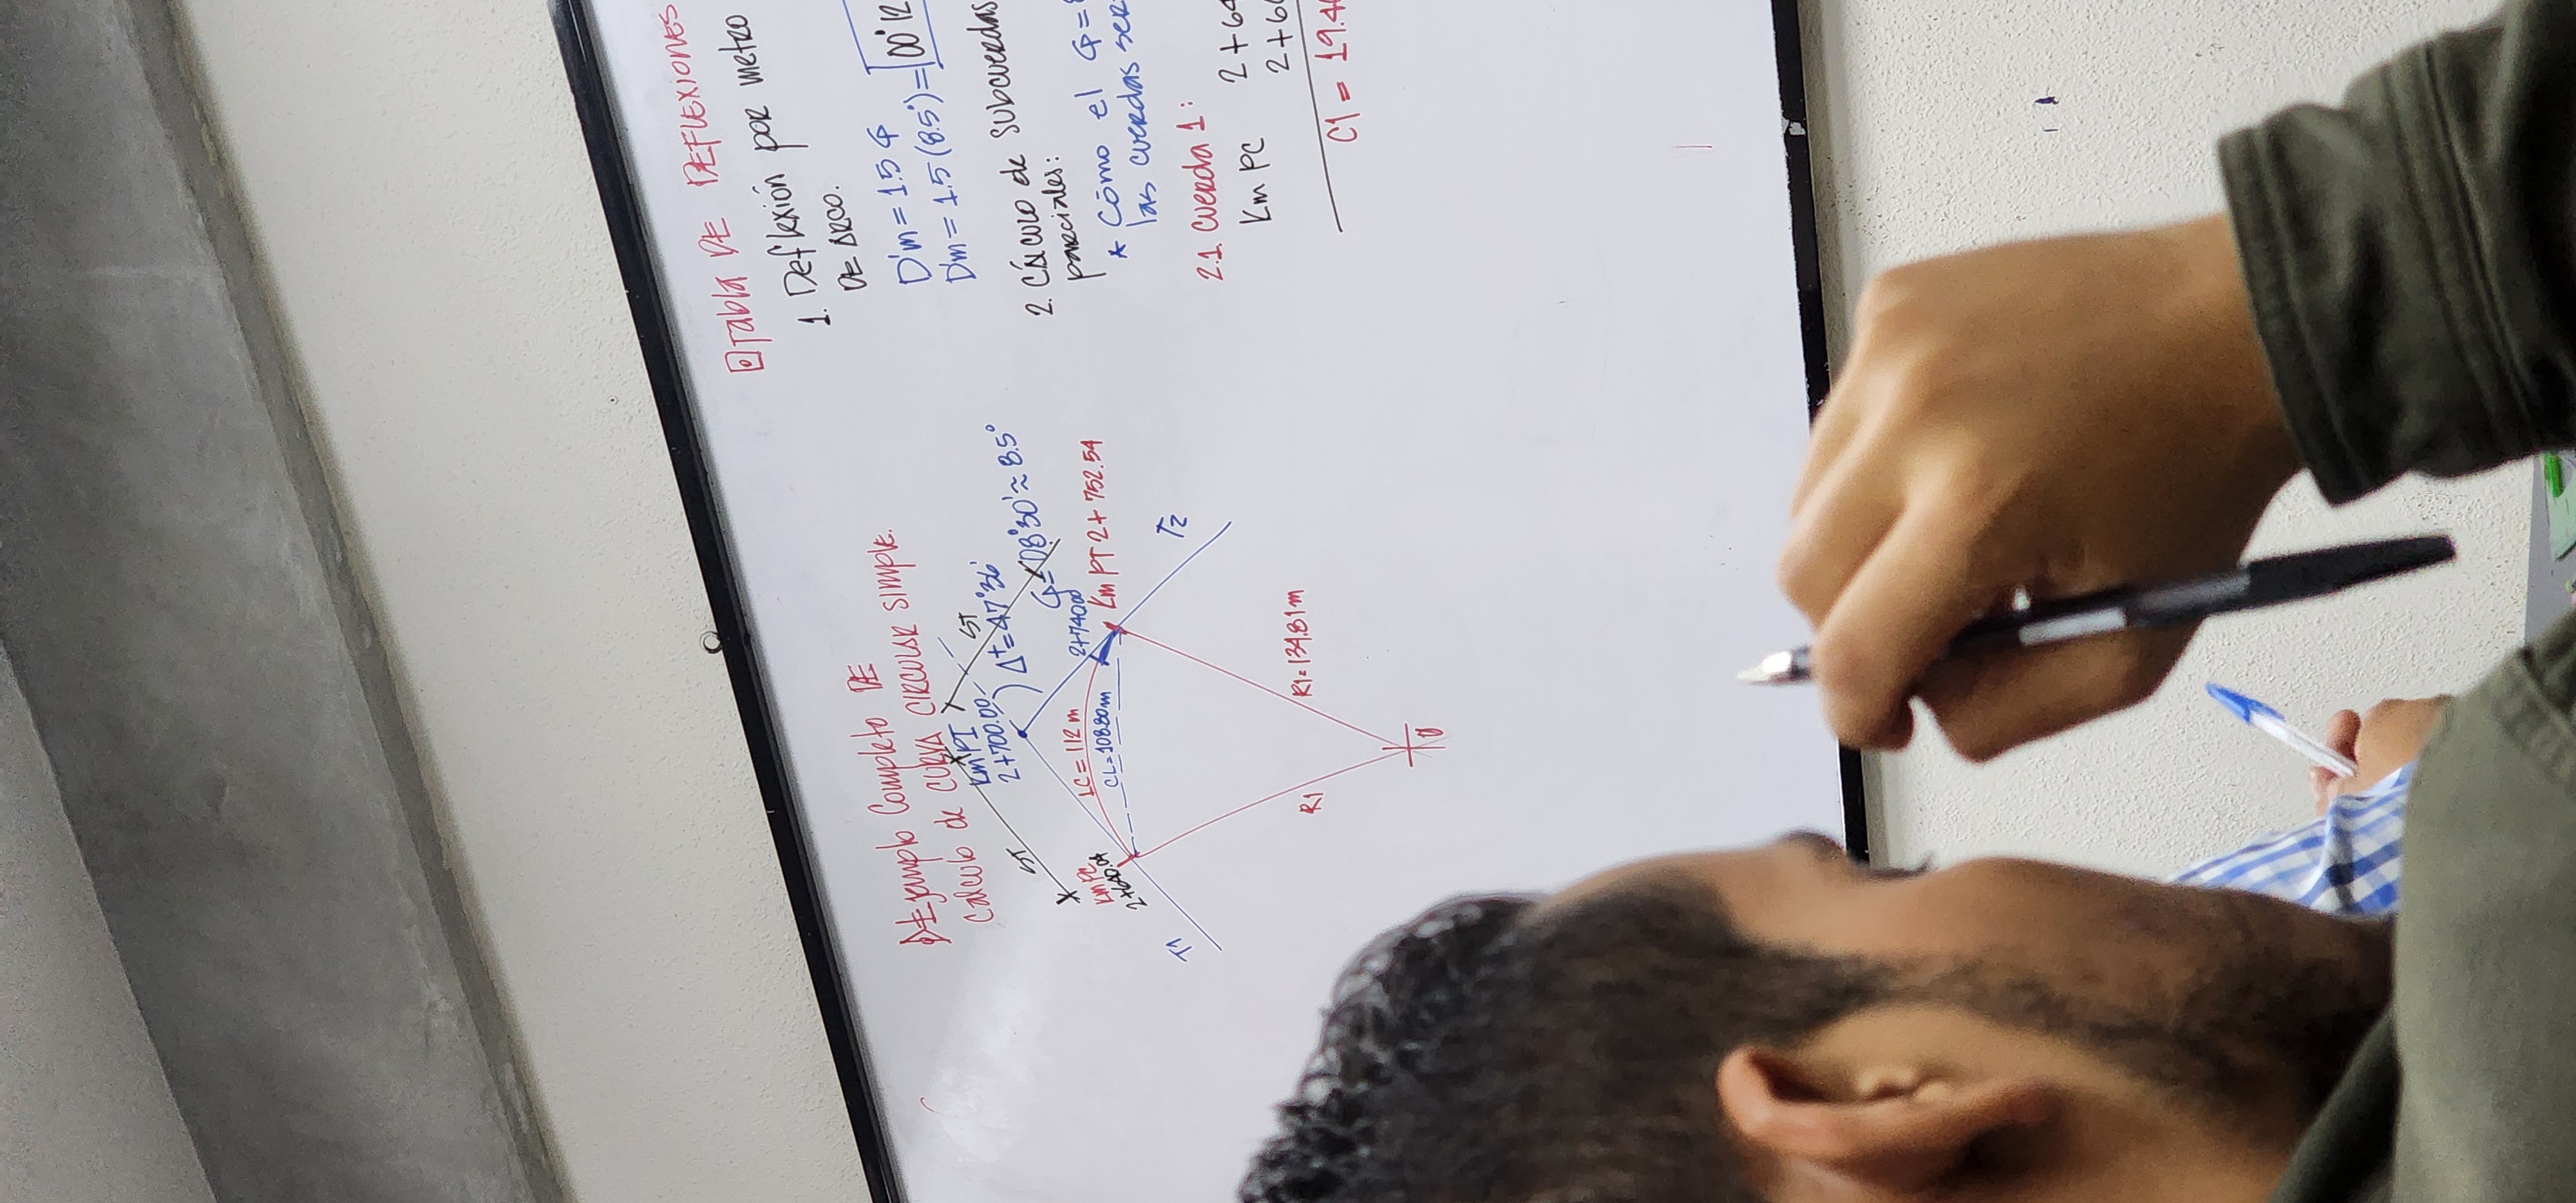 Ejemplo Completo DE
Calculo de CURVA CIRCULAR SIMPLE.
Km PI
2+700.00
ST
ST
Δ+=47°36'
G=08°30'≈8.5°
Km PC
2+640.04
LC=112 m
CL=108.80m
2+740.00
Km PT 2+752.54
T1
T2
R1
R1=134.81m
Tabla DE DEFLEXIONES
1. Deflexión por metro
DE ARCO.
D'm=1.5 G
D'm=1.5(8.5°)=00°12
2. CÁlCulo de subcuerdas
parciales:
* Cómo el G=
las cuerdas ser
2.1. Cuerda 1:
Km PC 2+64
2+6
C1=19.